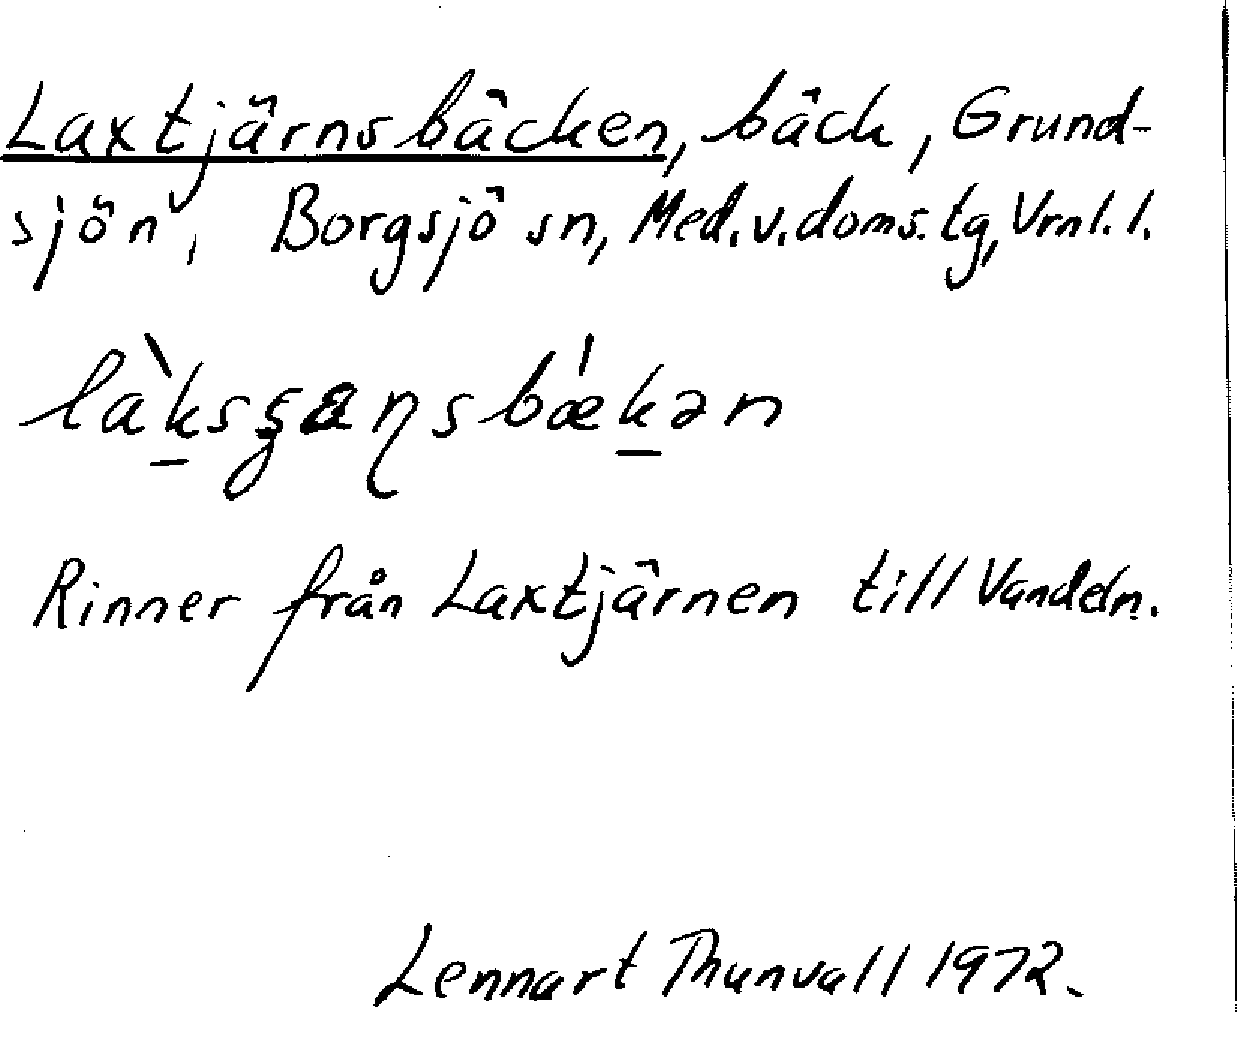 Laxtjärnsbäcken, bäck, Grund-
sjön, Borgsjö sn, Med.v.doms.tg, Vrnl. l.
Rinner från Laxtjärnen till Vandeln.
Lennart Thunvall 1972.